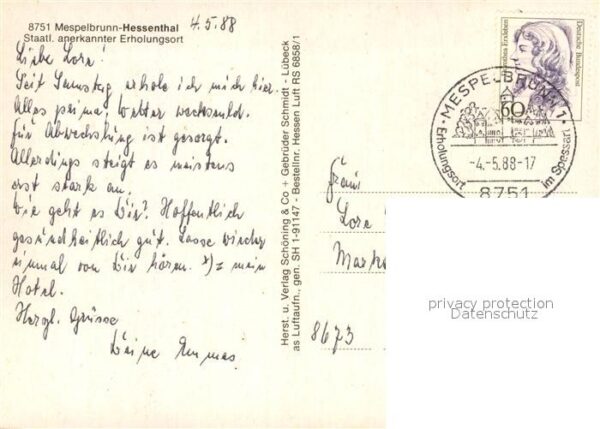 8751 Mespelbrunn-Hessenthal
Staatl. anerkannter Erholungsort
4.5.88
Liebe Lore!
Seit Samstag erhole ich mich hier.
Alles prima, Wetter wechselnd.
für Abwechslung ist gesorgt.
Allerdings steigt es meistens
erst stark an.
Wie geht es Dir? Hoffentlich
gesundheitlich gut. Lasse wieder
einmal von Dir hören. x) = mein
Hotel.
Herzl. Grüsse
Deine
Herst. u. Verlag Schöning & Co + Gebrüder Schmidt - Lübeck
as Luftaufn., gen. SH 1-91147 - Bestellnr. Hessen Luft RS 6858/1
Deutsche Bundespost
60
MESPELBRUNN 1
Erholungsort im Spessart
-4.-5.88-17
8751
Frau
Lore
Markt
8673
privacy protection
Datenschutz